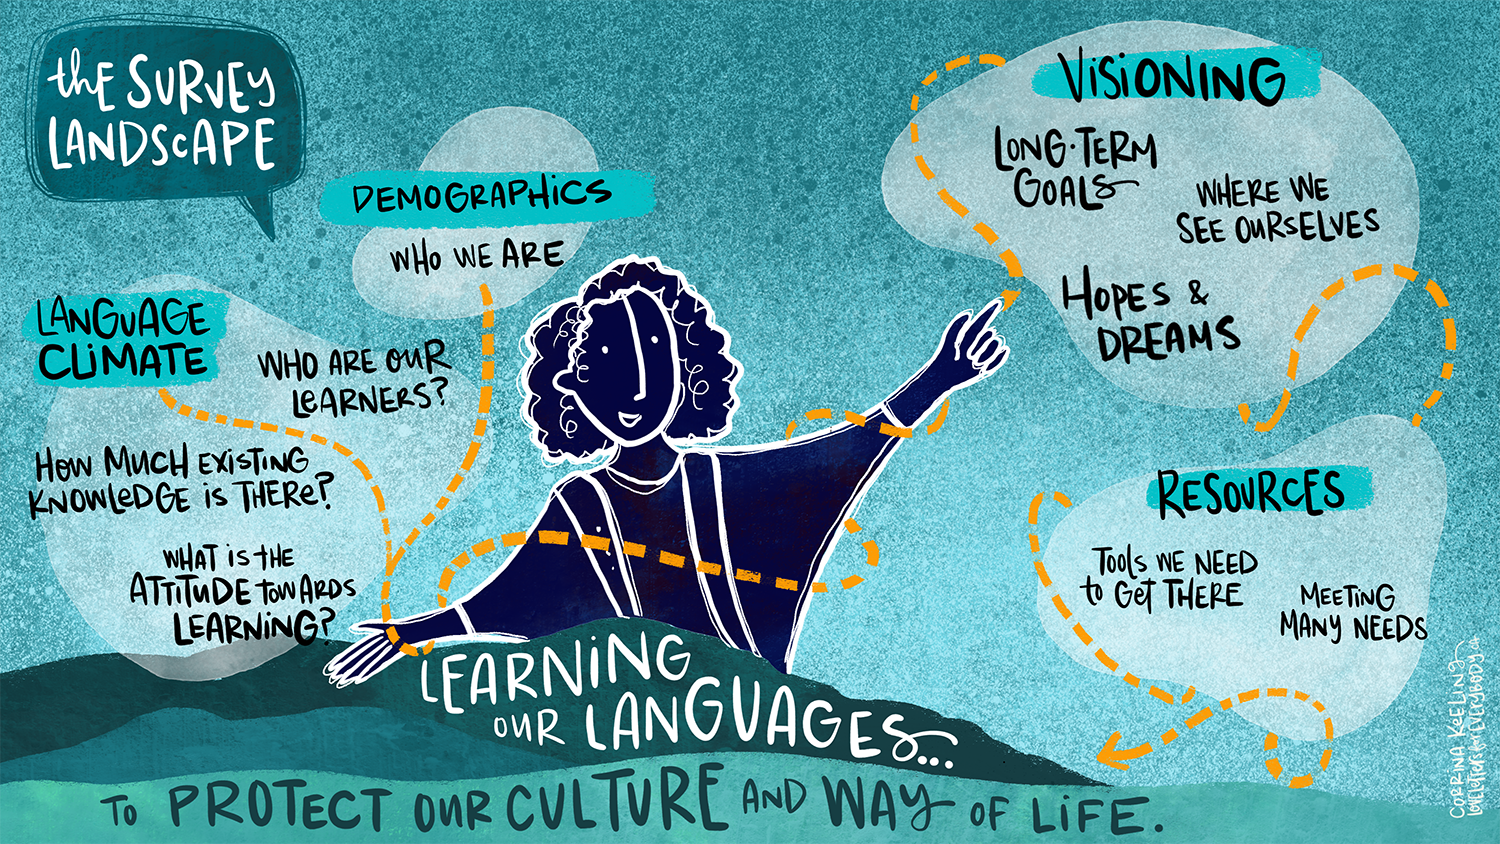 the SURVEY
LANDSCAPE
DEMOGRAPHICS
WHO WE ARE
LANGUAGE
CLIMATE
WHO ARE OUR
LEARNERS?
HOW MUCH EXISTING
KNOWLEDGE IS THERE?
WHAT IS THE
ATTITUDE TOWARDS
LEARNING?
VISIONING
LONG-TERM
GOALS
WHERE WE
SEE OURSELVES
HOPES &
DREAMS
RESOURCES
TOOLS WE NEED
to GET THERE
MEETING
MANY NEEDS
LEARNING
OUR LANGUAGES...
TO PROTECT OUR CULTURE AND WAY OF LIFE.
CORRINA KEELING
LOVELETTERS for EVERYBODY.ca